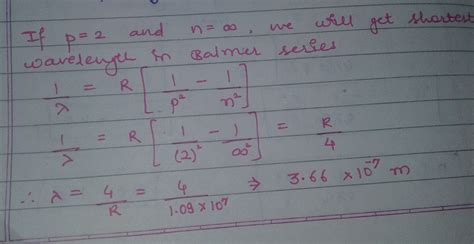 If p=2 and n=∞, we will get shortest
wavelength in Balmer series
1/λ = R [ 1/p² - 1/n² ]
1/λ = R [ 1/(2)² - 1/∞² ] = R/4
∴ λ = 4/R = 4/1.09×10⁷ ⇒ 3.66 ×10⁻⁷ m